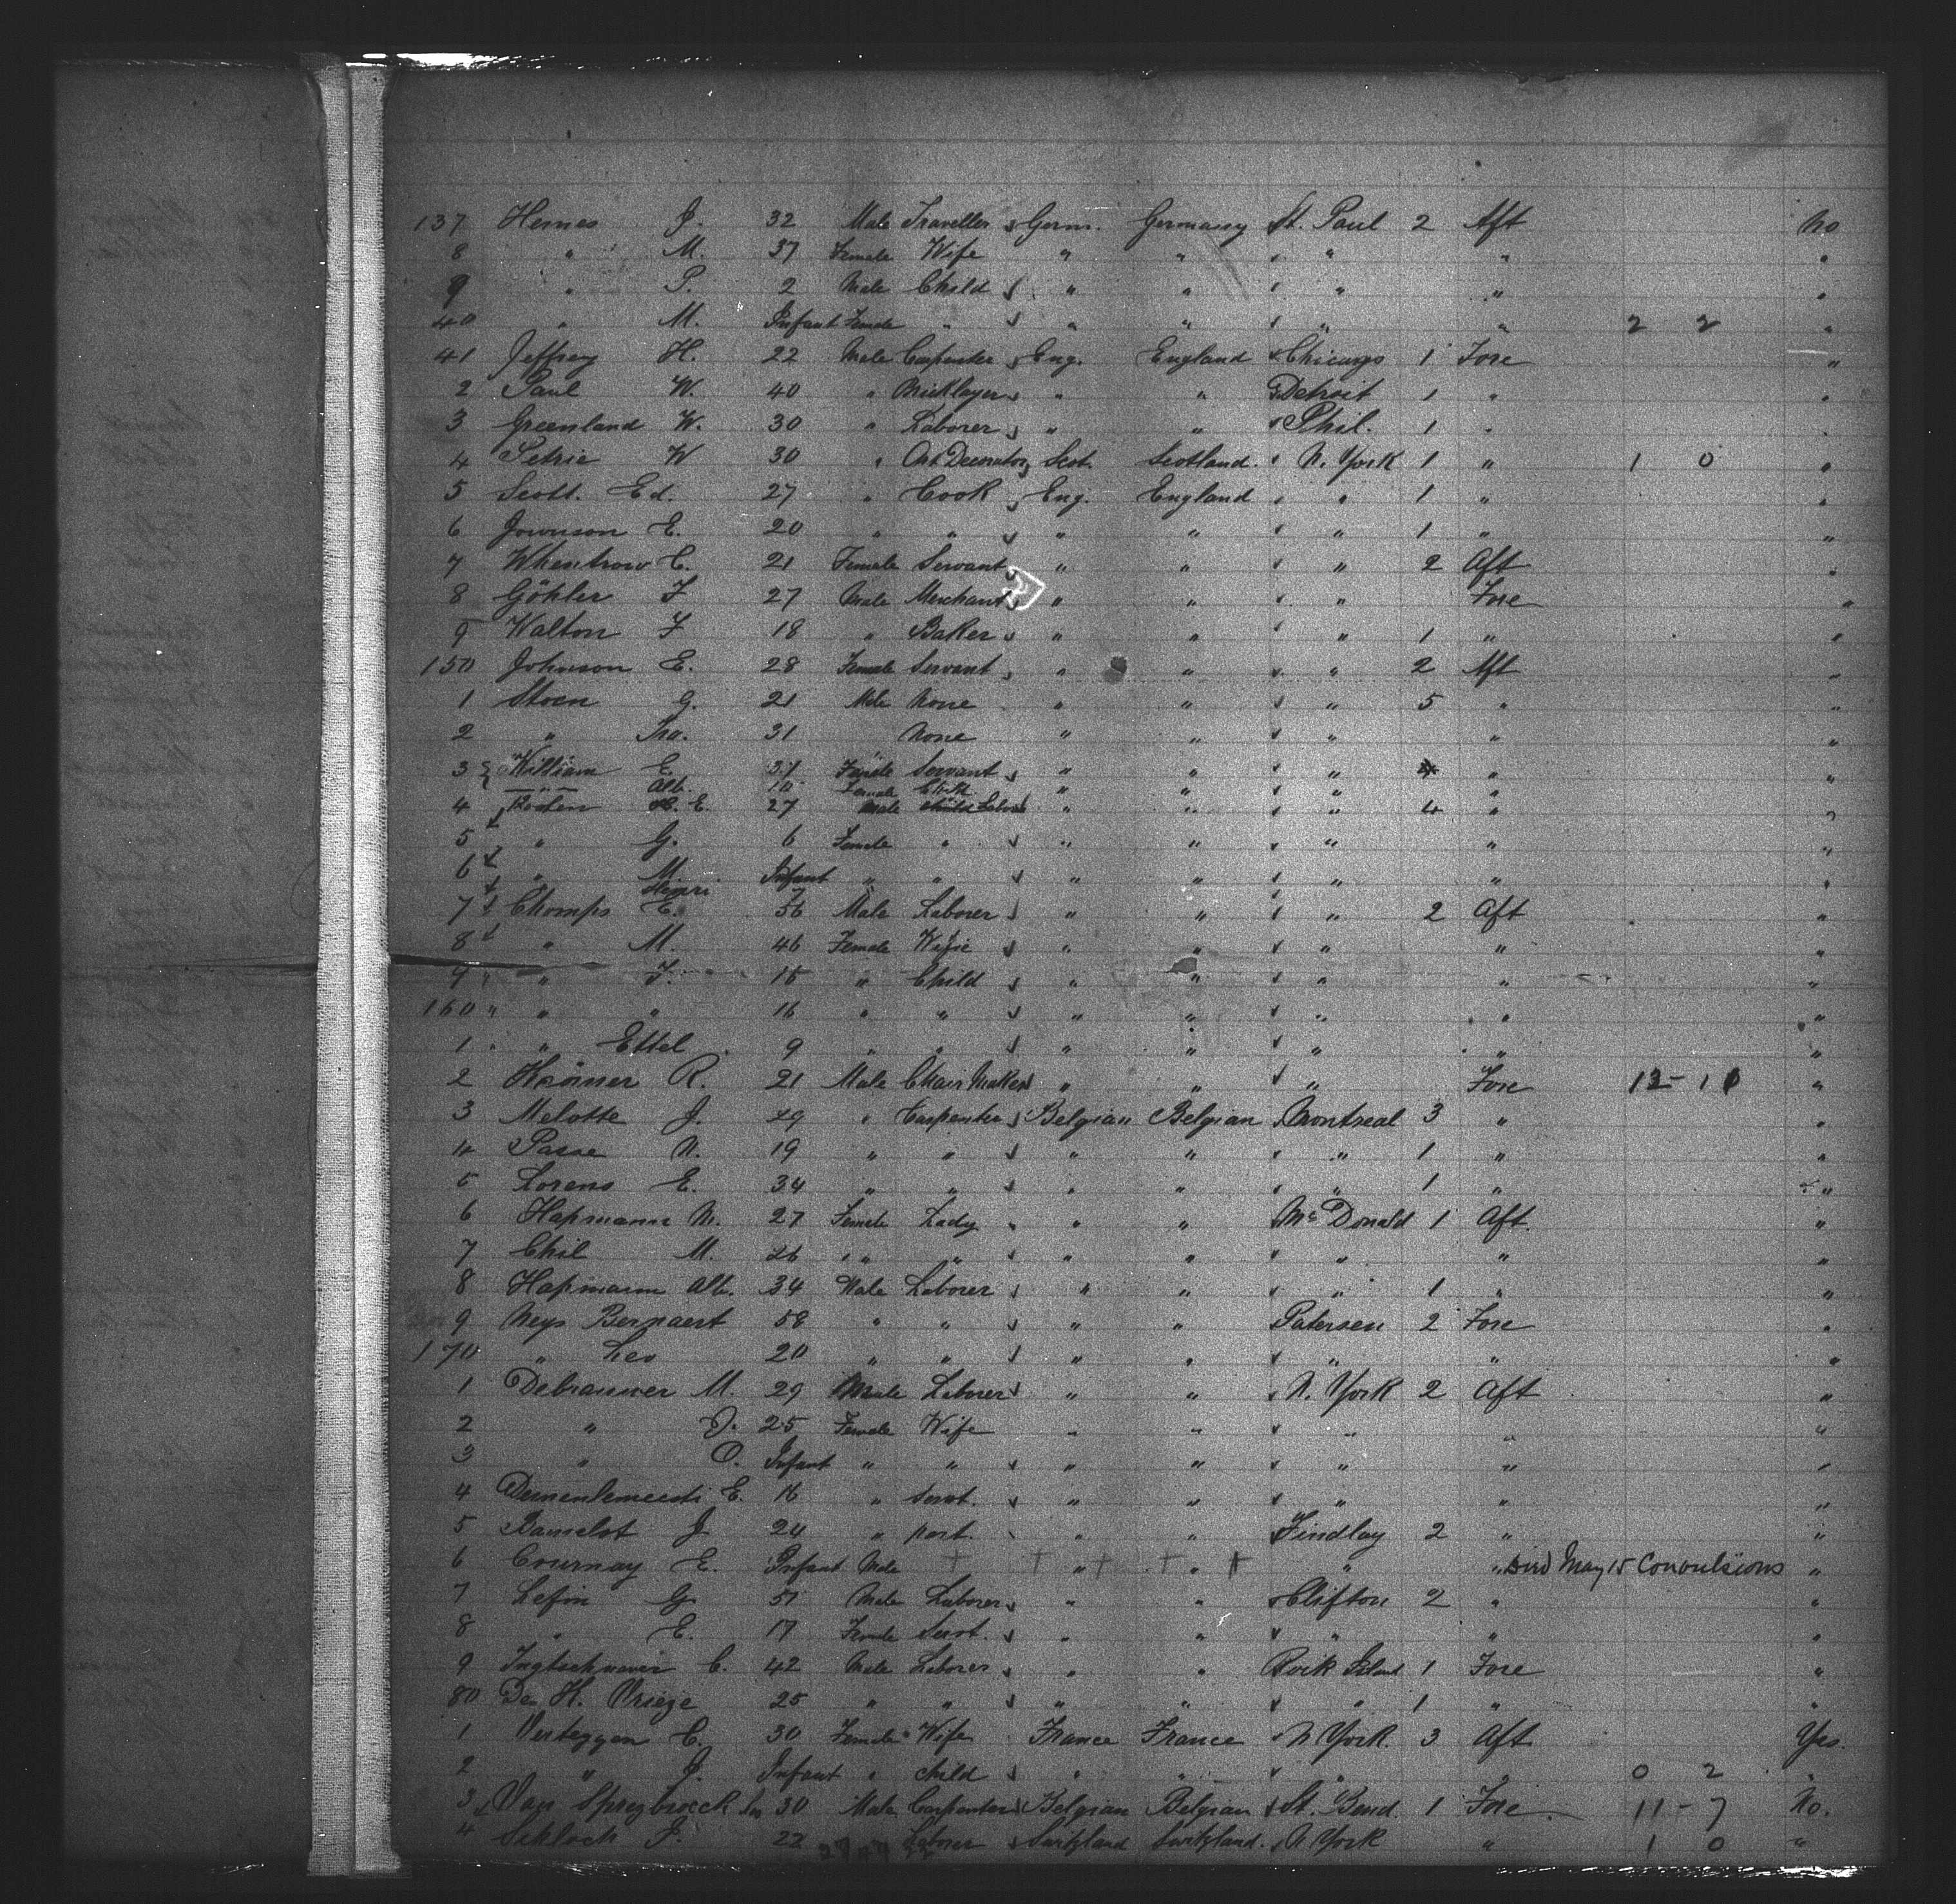 137 Hemes J. 32 Male Traveller Germ. Germany St. Paul 2 Aft No
8 " M. 37 Female Wife " " " "
9 " P. 2 Male Child " " " " "
40 " M. Infant Female " " " " " 2 2 "
41 Jeffrey H. 22 Male Carpenter Eng. England Chicago 1 Fore "
2 Paul W. 40 " " " Detroit 1 " "
3 Greenland W. 30 " Laborer " " Phil. 1 " "
4 Petrie W 30 " Art Decorator Scot. Scotland. N. York 1 " 1 0 "
5 Scott. Ed. 27 " Cook Eng. England " " 1 " "
6 Jownson E. 20 " " " " " 1 " "
7 C. 21 Female Servant " " " 2 Aft "
8 Göhler F 27 Male Merchant " " " Fore "
9 Walton F 18 " Baker " " " 1 " "
150 Johnson E. 28 Female Servant " " " 2 Aft "
1 Stoen G. 21 Male None " " " 5 " "
2 " 31 None " " " " "
3 William E. 31 Female Servant " " " " "
" Alb. 10 Female " " " "
4 E. 27 Male " " " 4 " "
5 " G. 6 Female " " " " " "
6 " M. Infant " " " " " " "
Henri
7 Chomps E. 56 Male Laborer " " " 2 Aft "
8 " M. 46 Female Wife " " " " "
9 " F. 15 " Child " " " " "
160 " " " 16 " " " " " " "
1 " " Ettel 9 " " " " " " "
2 R. 21 Male Chair Maker " " " Fore 12-11 "
3 Melotte J. 29 " Carpenter Belgian Belgian Montreal 3 " "
4 Passe N. 19 " " " " " 1 " "
5 Lorens E. 34 " " " " " 1 " "
6 Hapmann M. 27 Female Lady " " " McDonald 1 Aft. "
7 Chil M. 26 " " " " " " " "
8 Hapmann Alb. 34 Male Laborer " " " 1 " "
9 Neys Bernaert 58 " " " " Patersen 2 Fore "
170 " Leo 20 " " " " " " "
1 M. 29 Male Laborer " " N. York 2 Aft "
2 " J. 25 Female Wife " " " " "
3 " O. Infant " " " " " " "
4 E. 16 " Servt. " " " " "
5 J 24 " " " Findlay 2 " "
6 Cournay E. Infant Male " " " " Died May 15 Convulsions "
7 Lefin G. 51 Male Laborer " " Clifton 2 " "
8 " E. 17 Female Servt. " " " " "
9 C. 42 Male Laborer " " Island 1 Fore "
80 De H. Vrieze 25 " " " " " 1 " "
1 Verteggen C. 30 Female Wife France France N York. 3 Aft Yes.
2 " J. Infant " child " " " " 0 2 "
3 Van Spreybroeck 30 Male Carpenter Belgian Belgian St. Bend. 1 Fore 11-7 No.
4 Schloch J. 22 Laborer Switzland Switzland. N York " 1 0 "